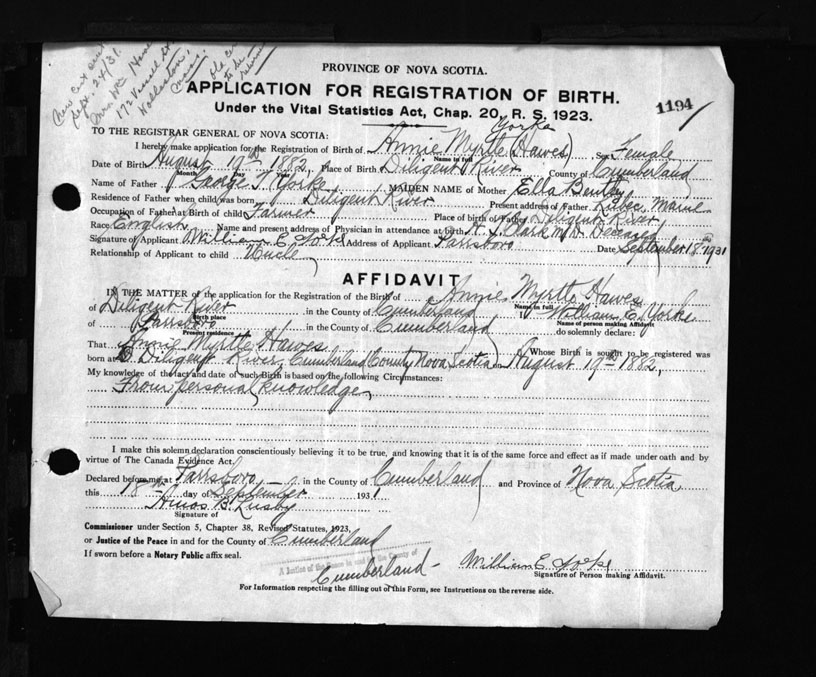 New Cert sent
Sept. 24/31.
Mrs Wm Hawes
172 St
Mass.
old
to be
returned
PROVINCE OF NOVA SCOTIA.
APPLICATION FOR REGISTRATION OF BIRTH.
Under the Vital Statistics Act, Chap. 20, R. S. 1923.
1194
TO THE REGISTRAR GENERAL OF NOVA SCOTIA:
Yorke
I hereby make application for the Registration of Birth of Annie Myrtle (Hawes) Sex Female
Name in full
Date of Birth August 19th 1882, Place of Birth Diligent River County of Cumberland
Month
Name of Father George T. Yorke, MAIDEN NAME of Mother Ella Bently
Residence of Father when child was born Diligent River Present address of Father Lubec Maine
Occupation of Father at Birth of child Farmer Place of birth of Father Diligent River
Race English Name and present address of Physician in attendance at birth Clark M.D. Deceased
Signature of Applicant William E. Yorke Address of Applicant Parrsboro Date September 18th 1931
Relationship of Applicant to child Uncle
AFFIDAVIT
IN THE MATTER of the application for the Registration of the Birth of Annie Myrtle Hawes
Name in full
of Diligent River in the County of Cumberland I William E. Yorke
Birth place
Name of person making Affidavit
of Parrsboro in the County of Cumberland do solemnly declare:
Present residence
That Annie Myrtle Hawes Whose Birth is sought to be registered was
born at Diligent River, Cumberland County Nova Scotia on August 19th 1882,
My knowledge of the fact and date of such Birth is based on the following Circumstances:
From personal knowledge
I make this solemn declaration conscientiously believing it to be true, and knowing that it is of the same force and effect as if made under oath and by
virtue of The Canada Evidence Act.
Declared before me at Parrsboro in the County of Cumberland and Province of Nova Scotia
this 18th day of September 1931
Amos B. Lusby
Signature of
Commissioner under Section 5, Chapter 38, Revised Statutes, 1923,
or Justice of the Peace in and for the County of Cumberland
If sworn before a Notary Public affix seal.
A Justice of the Peace in and for the County of
Cumberland
William E. Yorke
Signature of Person making Affidavit.
For Information respecting the filling out of this Form, see Instructions on the reverse side.